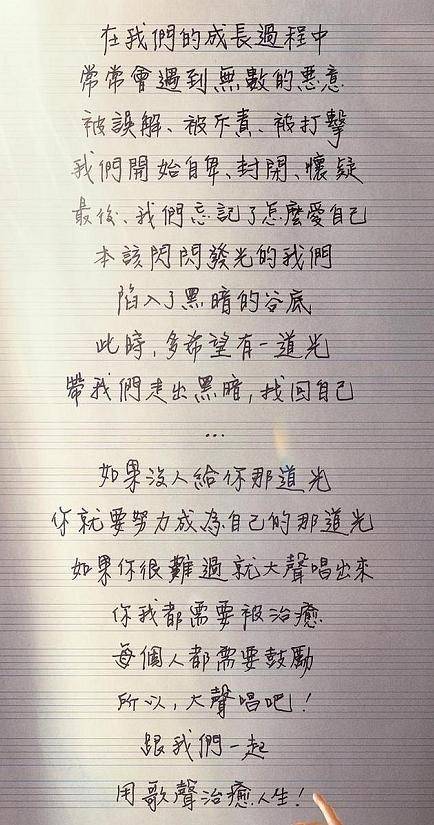 在我們的成長過程中
常常會遇到無數的惡意
被誤解、被斥責、被打擊
我們開始自卑、封閉、懷疑
最後、我們忘記了怎麼愛自己
本該閃閃發光的我們
陷入了黑暗的谷底
此時,多希望有一道光
帶我們走出黑暗,找回自己
...
如果沒人給你那道光
你就要努力成為自己的那道光
如果你很難過就大聲唱出來
你我都需要被治癒
每個人都需要鼓勵
所以,大聲唱吧!
跟我們一起
用歌聲治癒人生!